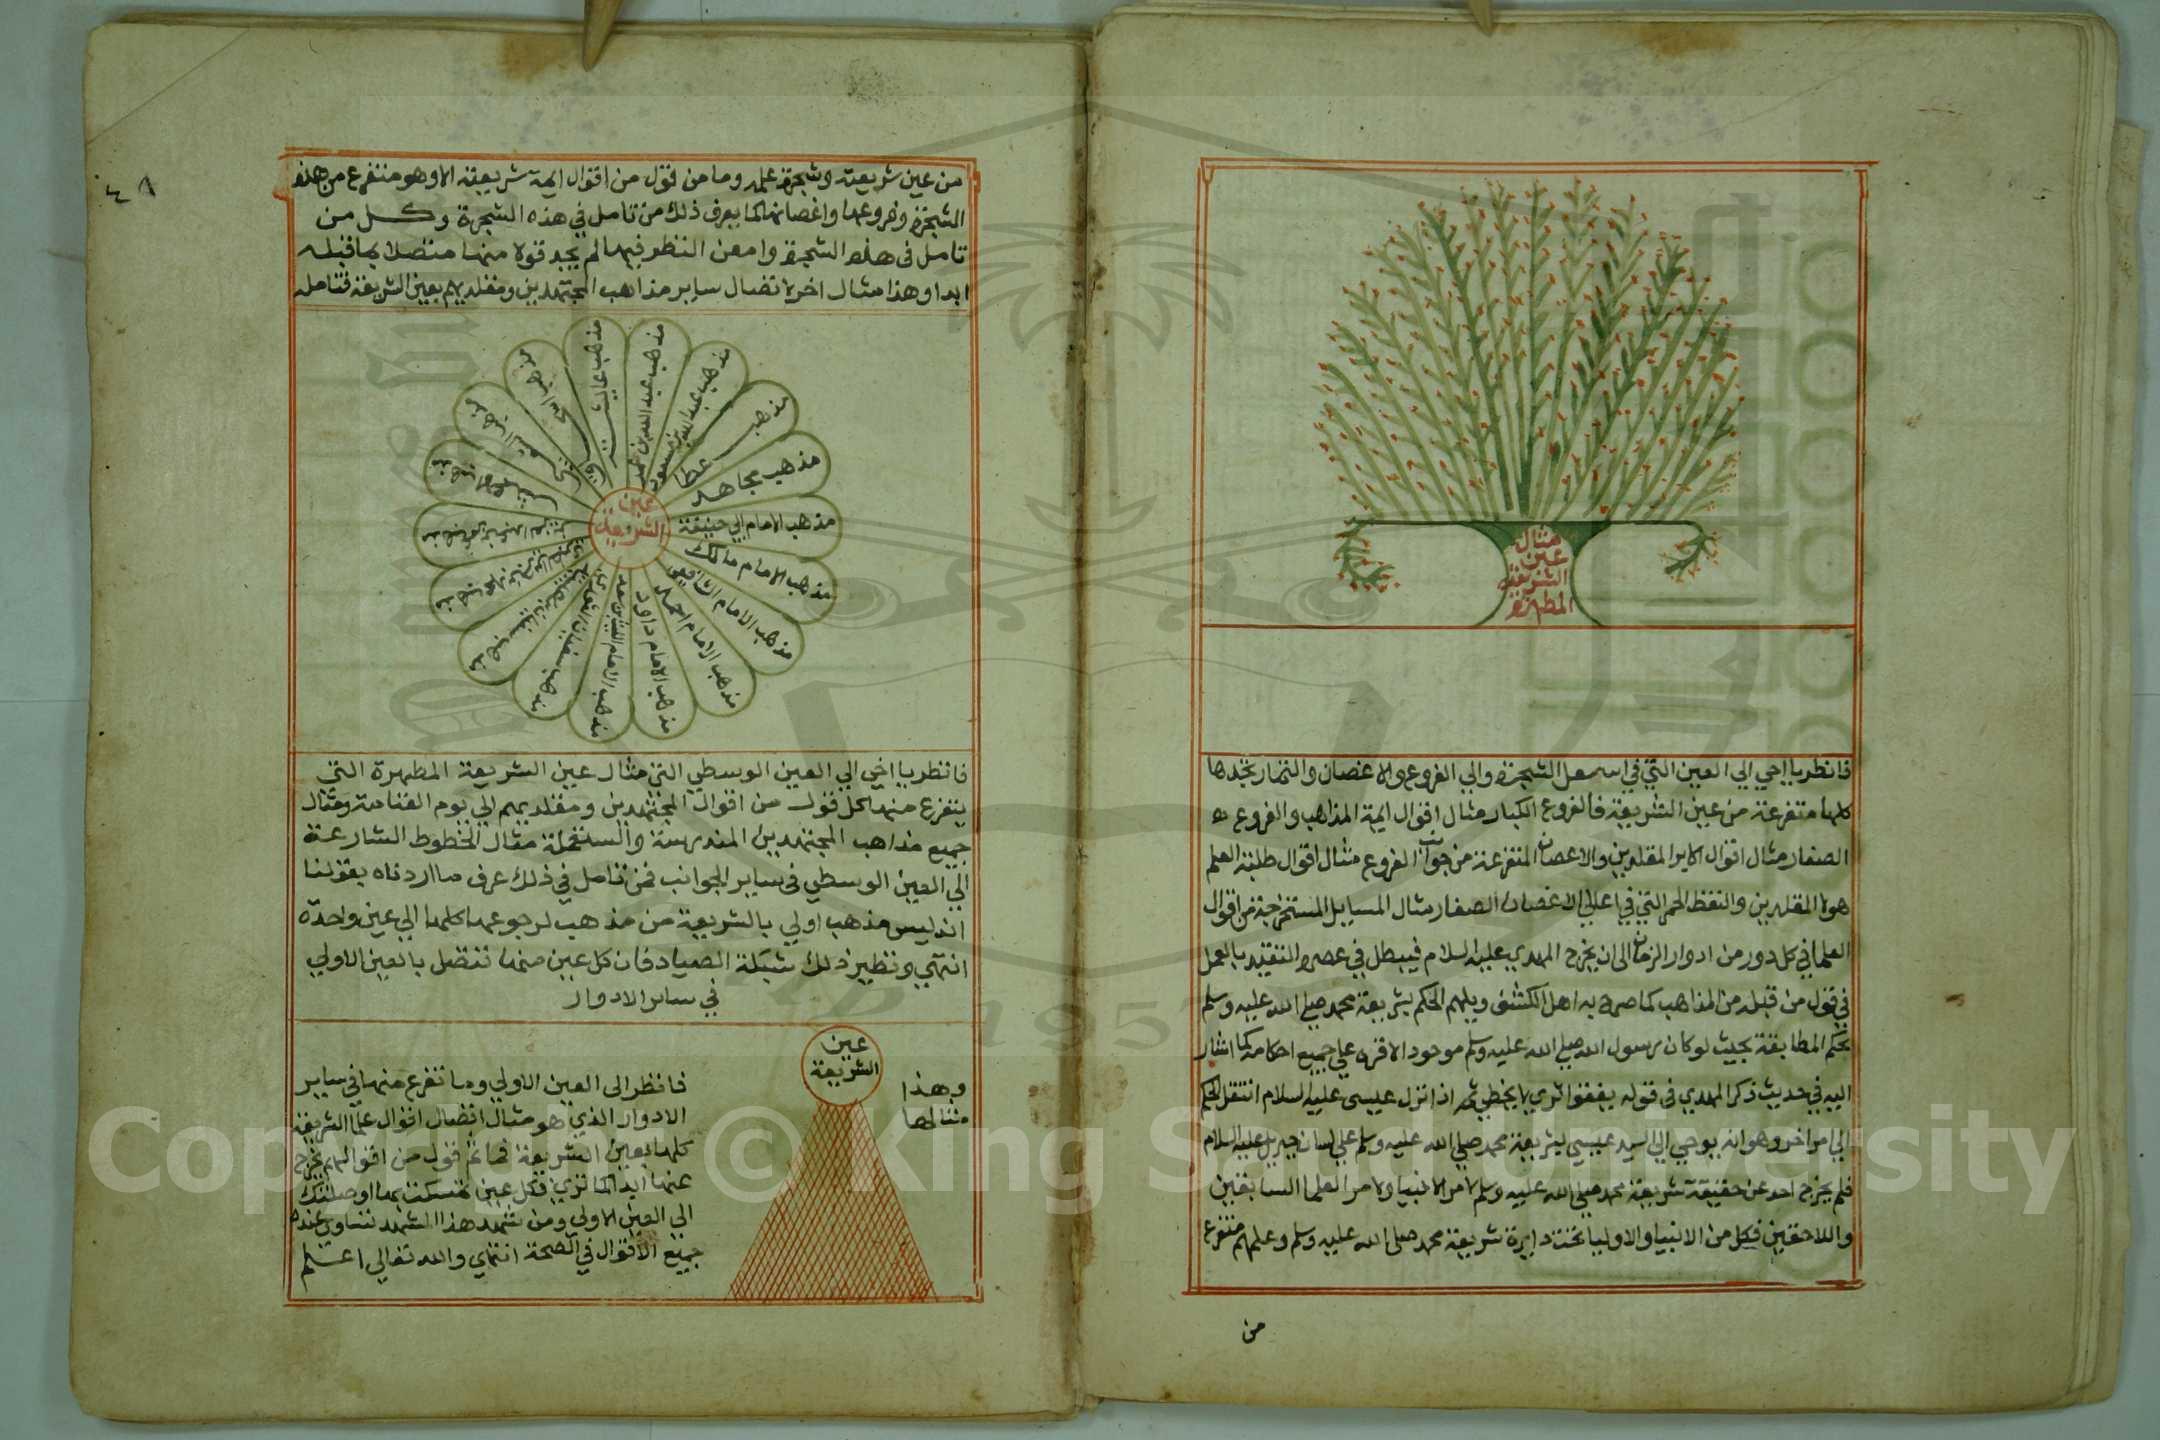 مثال
عين
الشريعة
المطهرة
فانظر يا اخي الي العين التي في اسفل الشجرة والي الفروع والاغصان والثمار تجدها
كلها متفرعة من عين الشريعة فالفروع الكبار مثال اقوال ايمة المذاهب والفروع
الصغار مثال اقوال الاكابر المقلدين والاغصان المتفرعة من جوانب الفروع مثال اقوال طلبة العلم
هولا المقلدين والنقط الحمر التي في اعالي الاغصان الصغار مثال المسايل المستخرجة من اقوال
العلما في كل دور من ادوار الزمان الى ان يخرج المهدي عليه السلام فيبطل في عصره التقيد بالعمل
في قول من قبله من المذاهب كما صرح به اهل الكشف ويلهم الحكم بشريعة محمد صلي الله عليه وسلم
بحكم المطابقة بحيث لو كان رسول الله صلي الله عليه وسلم موجودا لاقره علي جميع احكامه كما اشار
اليه في حديث ذكر المهدي في قوله يقفوا ثري لا يخطي ثم اذا نزل عيسى عليه السلام انتقل الحكم
الي امر اخر وهو انه يوحي الي السيد عيسي بشريعة محمد صلي الله عليه وسلم علي لسان جبريل عليه السلام
فلم يخرج احد عن حقيقة شريعة محمد صلي الله عليه وسلم لا من الانبيا ولا من العلما السابقين
واللاحقين فكل من الانبيا والاوليا تحت دايرة شريعة محمد صلى الله عليه وسلم وعلمهم متفرع
من
٤٨
من عين شريعته وشجرة علمه وما من قول من اقوال ايمة شريعته الا وهو متفرع من هذه
الشجرة وفروعها واغصانها كما يعرف ذلك من تامل في هذه الشجرة وكل من
تامل في هذه الشجرة وامعن النظر فيها لم يجد قولا منها متصلا بما قبله
ابدا وهذا مثال اخر لاتصال ساير مذاهب المجتهدين ومقلديهم بعين الشريعة فتامله
عين
الشريعة
مذهب عايشة
مذهب عبد الله بن عمر
مذهب عبد الله بن مسعود
مذهب عطا
مذهب مجاهد
مذهب الامام ابي حنيفة
مذهب الامام مالك
مذهب الامام الشافعي
مذهب الامام احمد
مذهب الامام داود
مذهب الامام الليث بن سعد
مذهب سفيان الثوري
مذهب سفيان بن عيينة
مذهب عمر بن عبد العزيز
مذهب الاعمش
مذهب الشعبي
مذهب اسحق
فانظر يا اخي الي العين الوسطي التي مثال عين الشريعة المطهرة التي
يتفرع منها كل قول من اقوال المجتهدين ومقلديهم الي يوم القيامة ومثال
جميع مذاهب المجتهدين المندرسة والمستعملة مثال الخطوط الشارعة
الي العين الوسطي في ساير الجوانب فمن تامل في ذلك عرف ما اردناه بقولنا
انه ليس مذهب اولي بالشريعة من مذهب لرجوعها كلها الي عين واحدة
انتهي ونظير ذلك شبكة الصياد فان كل عين منها تتصل بالعين الاولي
في ساير الادوار
وهذا
مثالها
عين
الشريعة
فانظر الى العين الاولي وما تفرع منها في ساير
الادوار الذي هو مثال اتصال اقوال علما الشريعة
كلها بعين الشريعة فما ثم قول من اقوالهم يخرج
عنها ابدا كما تري فكل عين تمسكت بها اوصلتك
الي العين الاولي ومن شهد هذا المشهد تساوي عنده
جميع الاقوال في الصحة انتهي والله تعالي اعلم
Copyright © King Saud University
1957